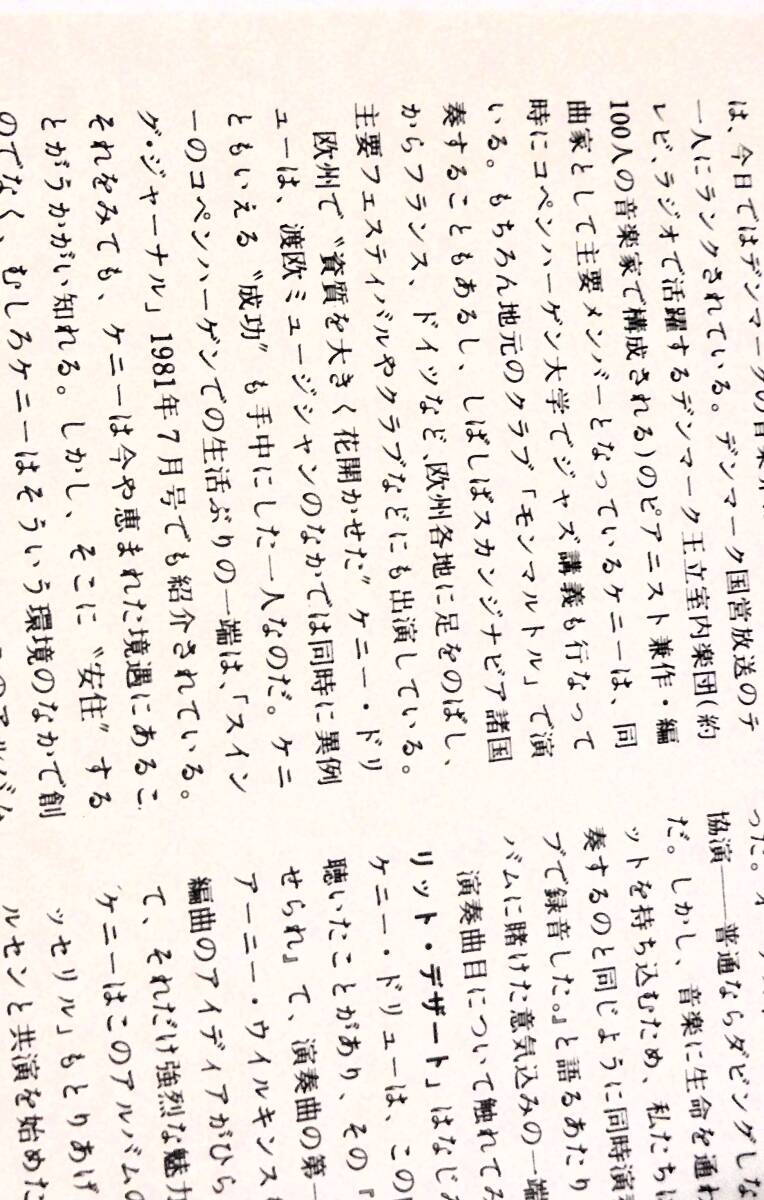 は、今日ではデンマークの音楽
一人にランクされている。デンマーク国営放送のテ
レビ、ラジオで活躍するデンマーク王立室内楽団(約
100人の音楽家で構成される)のピアニスト兼作・編
曲家として主要メンバーとなっているケニーは、同
時にコペンハーゲン大学でジャズ講義も行なって
いる。もちろん地元のクラブ「モンマルトル」で演
奏することもあるし、しばしばスカンジナビア諸国
からフランス、ドイツなど、欧州各地に足をのばし、
主要フェスティバルやクラブなどにも出演している。
欧州で〝資質を大きく花開かせた〟ケニー・ドリ
ューは、渡欧ミュージシャンのなかでは同時に異例
ともいえる〝成功〟も手中にした一人なのだ。ケニ
ーのコペンハーゲンでの生活ぶりの一端は、「スイン
グ・ジャーナル」1981年7月号でも紹介されている。
それをみても、ケニーは今や恵まれた境遇にあるこ
とがうかがい知れる。しかし、そこに〝安住〟する
のでなく、むしろケニーはそういう環境のなかで創
このアルバム
った。オ
協演——普通ならダビングしな
だ。しかし、音楽に生命を通わ
ットを持ち込むため、私たちは
奏するのと同じように同時演
ブで録音した。』と語るあたり
バムに賭けた意気込みの一端
演奏曲目について触れてみ
リット・デザート」はなじみ
ケニー・ドリューは、この
聴いたことがあり、その『
せられ』て、演奏曲の第一
アーニー・ウイルキンス
編曲のアイディアがひら
て、それだけ強烈な魅力
ケニーはこのアルバムの
ッセリル」もとりあげ
ルセンと共演を始めた